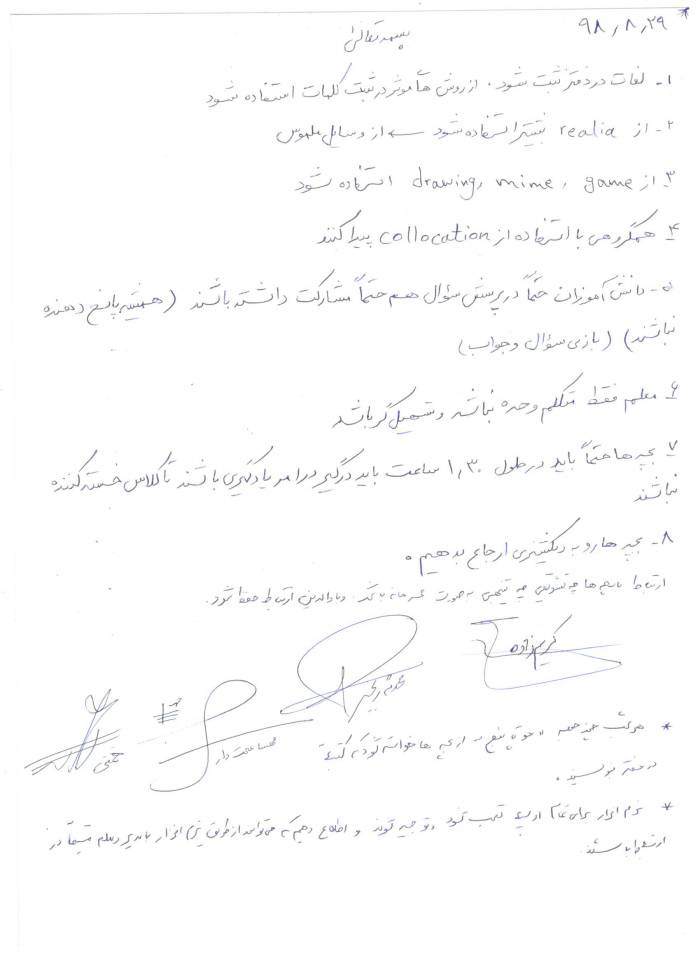 ۹۸/۸/۲۹
بسمه تعالی
۱- لغات در دفتر ثبت شود. از روش های موثر در ثبت کلمات استفاده شود
۲- از realia بیشتر استفاده شود ← از وسایل ملموس
۳- از drawing, mime, game استفاده شود
۴ همگروهی با استفاده از collocation پیدا کنند
۵- دانش آموزان حتماً در پرسش سؤال هم حتماً مشارکت داشته باشند (همیشه پاسخ دهنده
نباشند) (بازی سؤال و جواب)
۶ معلم فقط متکلم وحده نباشد و تسهیل گر باشد
۷ بچه ها حتماً باید در طول ۱,۳۰ ساعت باید درگیر در امر یادگیری باشند تا کلاس خسته کننده
نباشند
۸- بچه هارو به دیکشنری ارجاع بدهیم.
ارتباط با بچه ها چه تشویقی چه تنبیهی به صورت باشد. و با والدین ارتباط حفظ شود.
کریم زاده
* هر شب چند جمله از بچه ها خواسته شود که
در دفتر بنویسند.
* نرم افزار برای تمام نصب شود و توجیه شوند و اطلاع دهیم که می توانند از طریق نرم افزار با مدیر و معلم مستقیماً در
ارتباط باشند